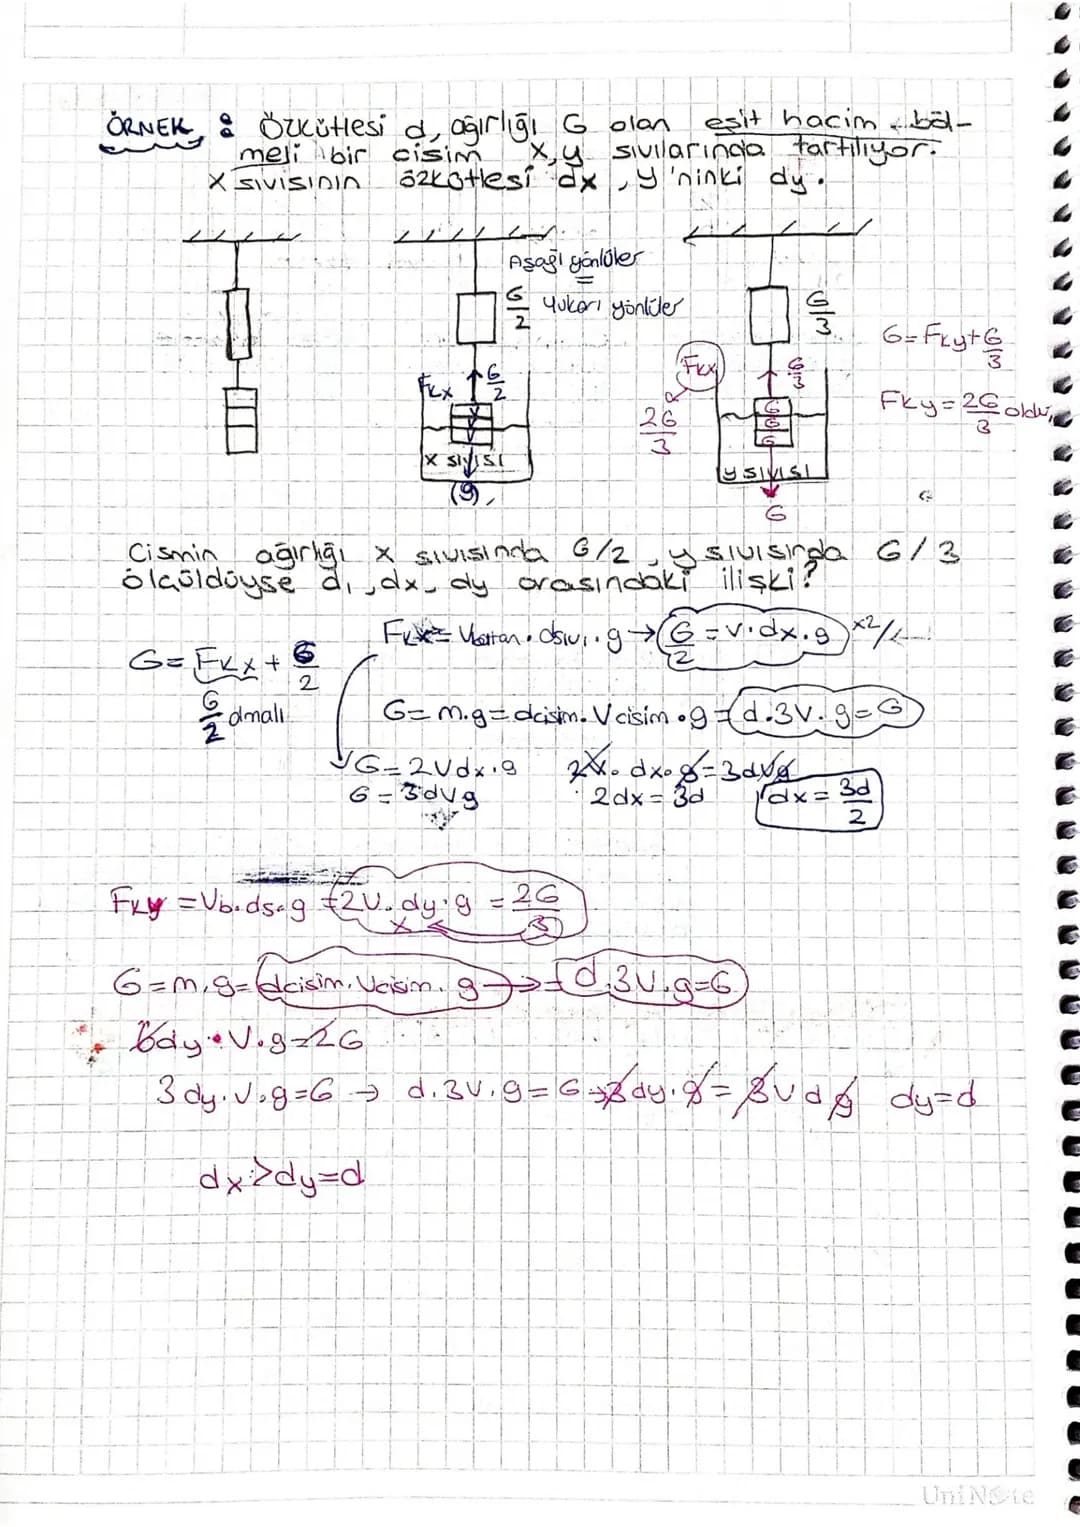 ÖRNEK : Özkütlesi d, ağırlığı G olan eşit hacim böl-
meli bir cisim X,y sıvılarında tartılıyor.
X sıvısının özkütlesi dx, y'ninki dy.
Aşağı yönlüler
=
Yukarı yönlüler
G/2
G/3
G=Fky+G/3
Fkx
G/2
Fkx
2G/3
G/3
G
G
G
Fky=2G/3 oldu,
X SIVISI
y SIVISI
(g)
G
Cismin ağırlığı x sıvısında G/2, y sıvısında G/3
ölçüldüyse d, dx, dy arasındaki ilişki?
Fkx= Vbatan.dsıvı.g→ G/2=V.dx.g x2
G=Fkx+G/2
G/2 olmalı
G=m.g=dcisim.Vcisim.g= d.3V.g=G
G=2Vdx.g 2V.dx.g=3dVg
G=3dVg 2dx=3d dx=3d/2
Fky=Vb.ds.g=2V.dy.g=2G/3
G=m.g=dcisim.Vcisim.g→=d.3V.g=G
6dy.V.g=2G
3dy.V.g=G → d.3V.g=G→3dy.g=3Vdg dy=d
dx>dy=d
UniNote